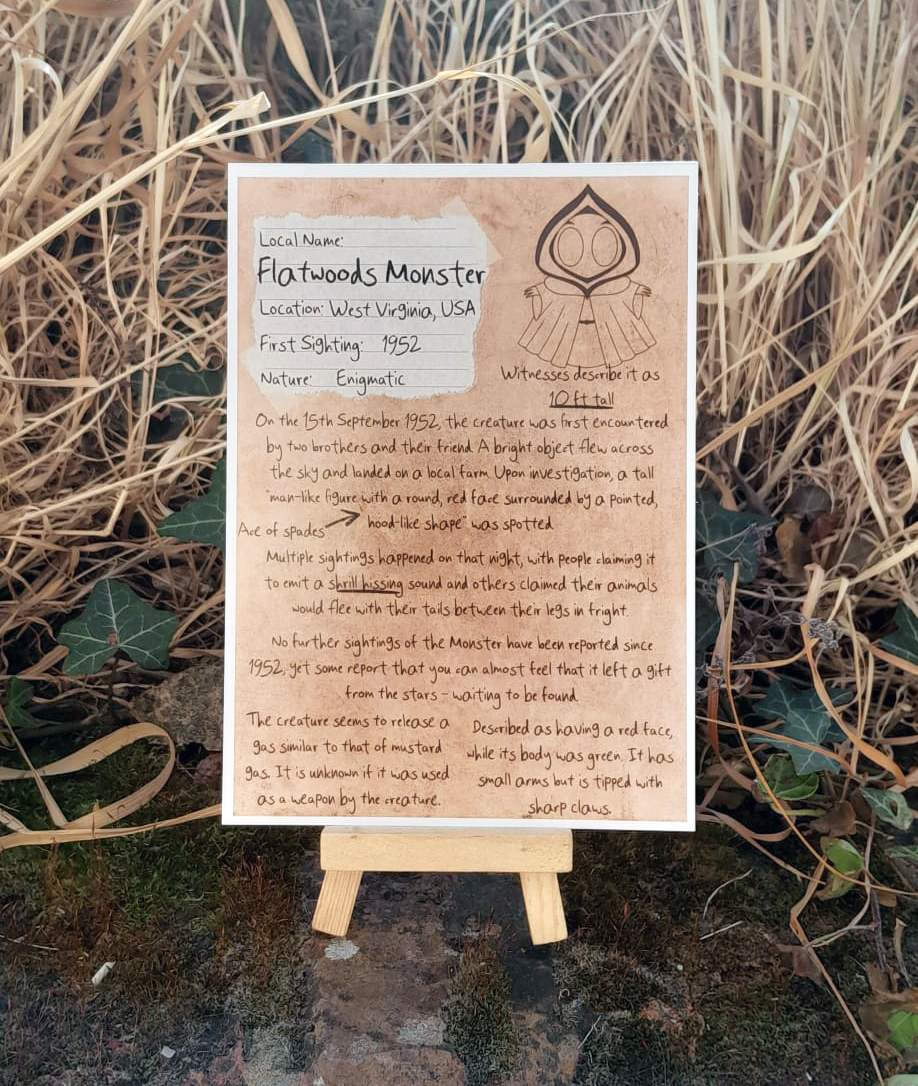 Local Name:
Flatwoods Monster
Location: West Virginia, USA
First Sighting: 1952
Nature: Enigmatic
Witnesses describe it as
10 ft tall
On the 15th September 1952, the creature was first encountered
by two brothers and their friend. A bright object flew across
the sky and landed on a local farm. Upon investigation, a tall
"man-like figure with a round, red face surrounded by a pointed,
hood-like shape" was spotted.
Ace of spades
Multiple sightings happened on that night, with people claiming it
to emit a shrill hissing sound and others claimed their animals
would flee with their tails between their legs in fright.
No further sightings of the Monster have been reported since
1952, yet some report that you can almost feel that it left a gift
from the stars - waiting to be found.
The creature seems to release a
gas similar to that of mustard
gas. It is unknown if it was used
as a weapon by the creature.
Described as having a red face,
while its body was green. It has
small arms but is tipped with
sharp claws.